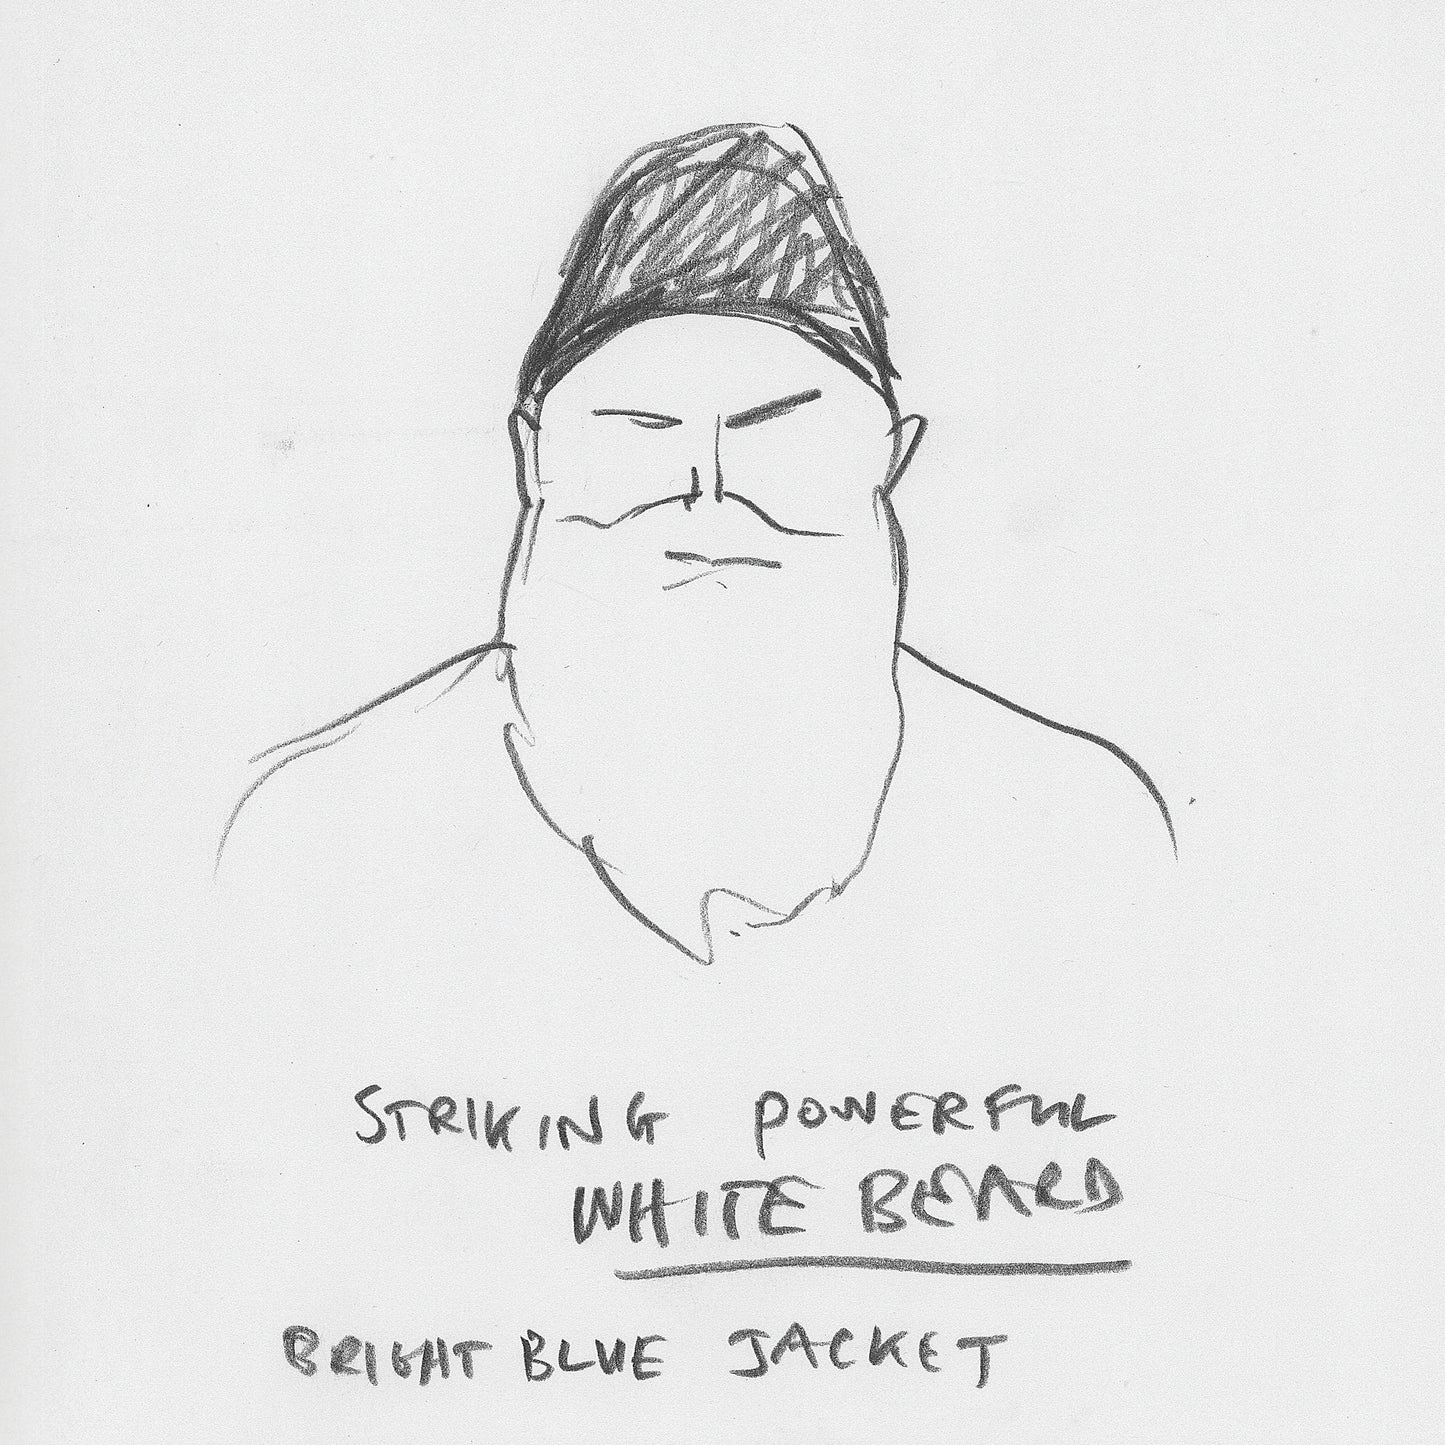 STRIKING POWERFUL
WHITE BEARD
BRIGHT BLUE JACKET